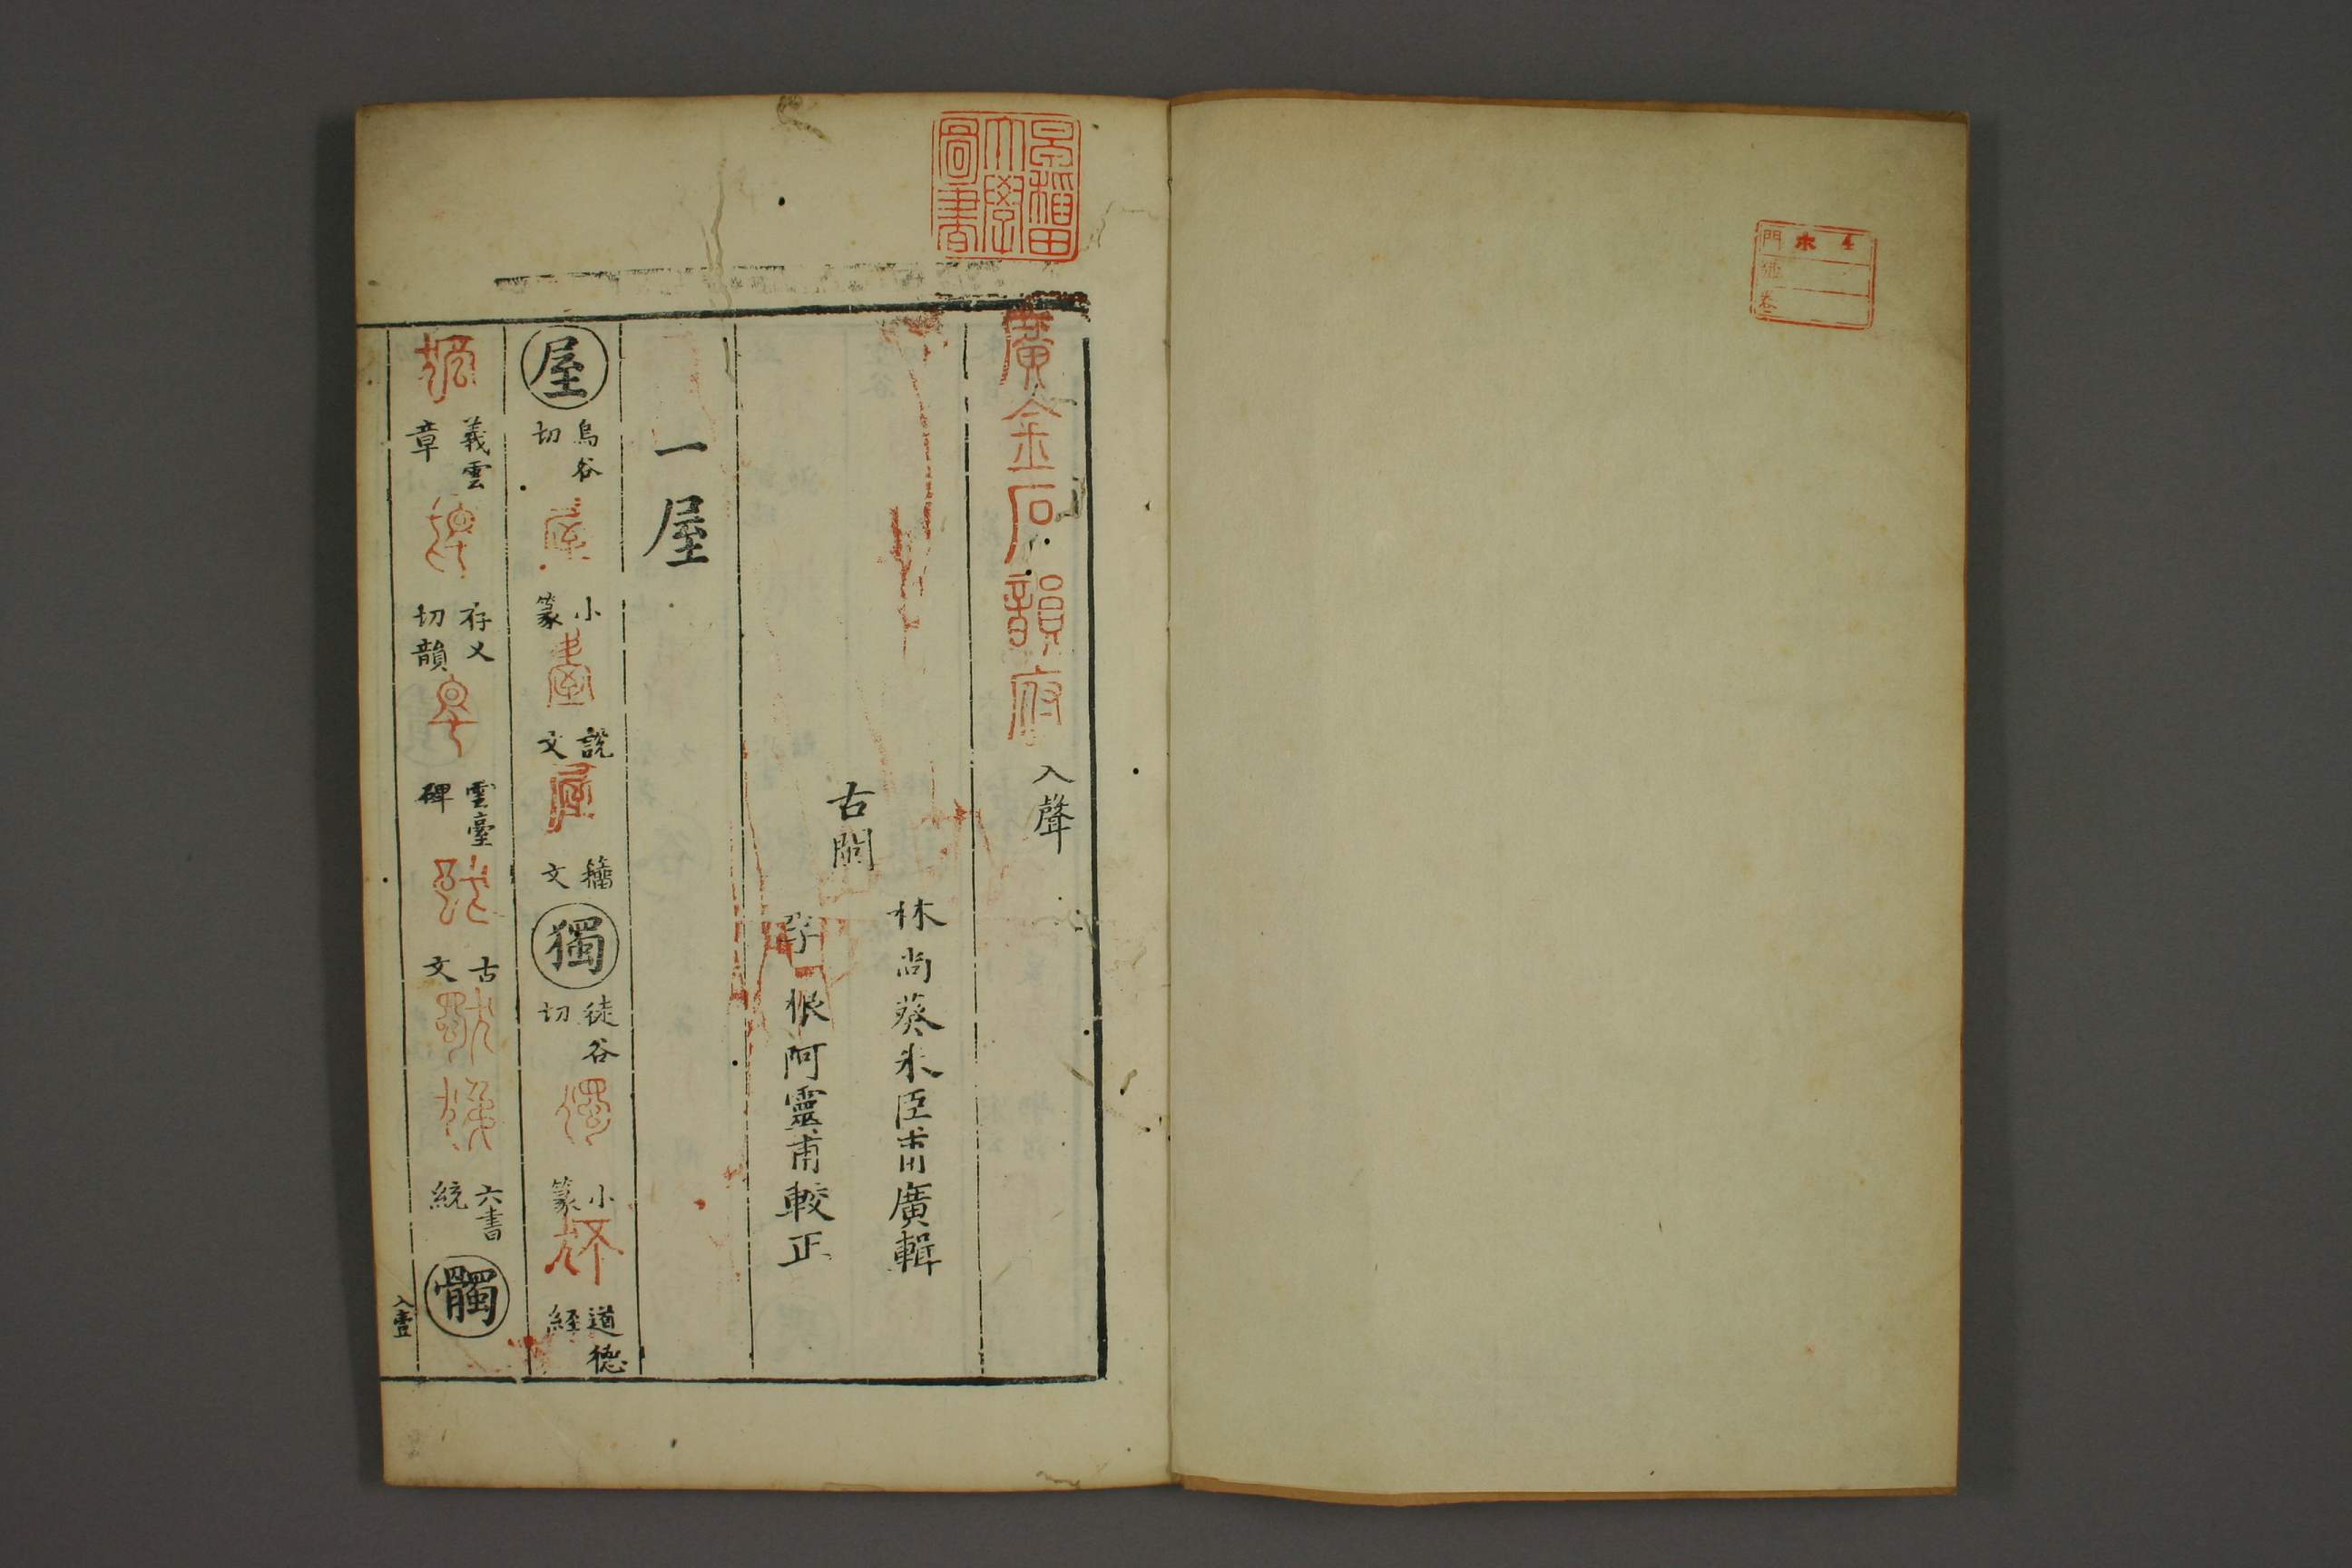 門
號
卷
早稲田
大學
圖書
廣金石韻府 入聲
林尚葵朱臣甫廣輯
古閩
李根阿靈甫較正
一屋
屋 烏谷切 小篆 說文 籀文 獨 徒谷切 小篆 道德経
義雲章 存乂切韻 雲臺碑 古文 六書統 髑
入壹